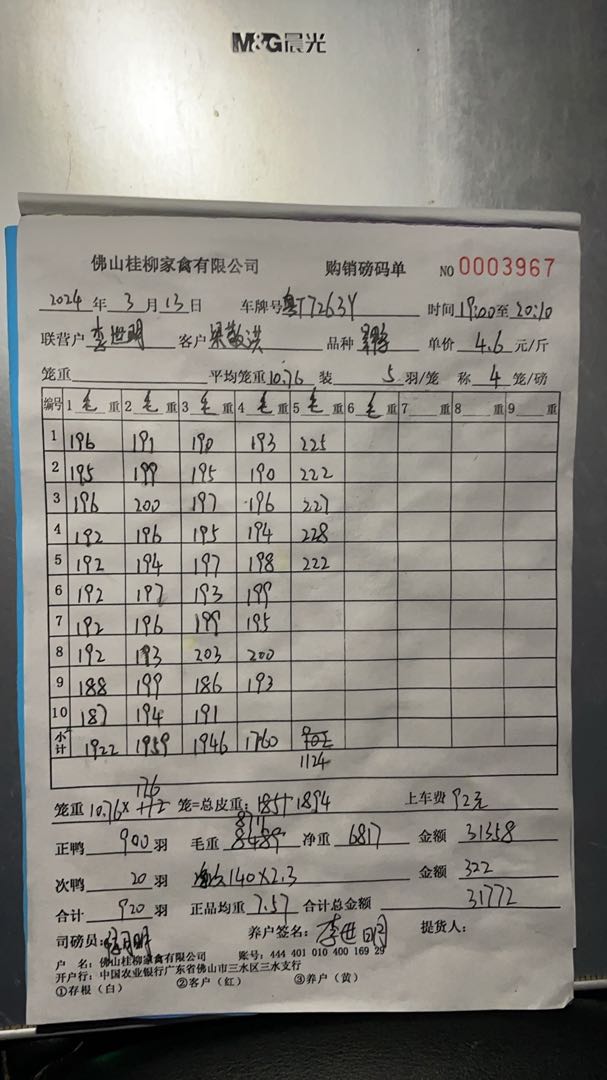 M&G晨光
佛山桂柳家禽有限公司 购销磅码单 NO 0003967
2024 年 3 月 13 日 车牌号 粤T7263Y 时间 19:00至 20:10
联营户 李世明 客户 梁敬洪 品种 单价 4.6 元/斤
笼重 平均笼重 10.76 装 5 羽/笼 称 4 笼/磅
编号 1 毛 重 2 毛 重 3 毛 重 4 毛 重 5 毛 重 6 毛 重 7 重 8 重 9 重
1 196 191 190 193 225
2 195 199 195 190 222
3 196 200 197 196 227
4 192 196 195 194 228
5 192 194 197 198 222
6 192 197 193 199
7 192 196 199 195
8 192 193 203 200
9 188 199 186 193
10 187 194 191
小计 1922 1959 1946 1760
1124
176
笼重 10.76× 笼=总皮重: 1894 上车费 92元
8711
正鸭 900 羽 毛重 8489 净重 6817 金额 31358
次鸭 20 羽 140×2.3 金额 322
合计 920 羽 正品均重 7.57 合计总金额 31772
司磅员: 养户签名: 李世明 提货人:
户 名: 佛山桂柳家禽有限公司 账号: 444 401 010 400 169 29
开户行: 中国农业银行广东省佛山市三水区三水支行
①存根(白) ②客户(红) ③养户(黄)